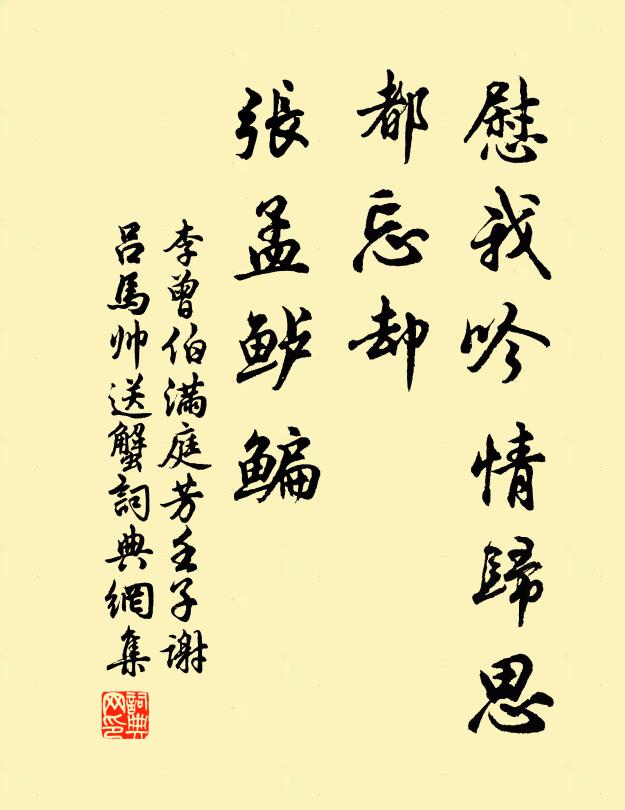 慰我吟情歸思
都忘却
張孟鲈鳊
李曾伯滿庭芳壬子謝
呂馬帅送蟹詞典網集
詞典网印